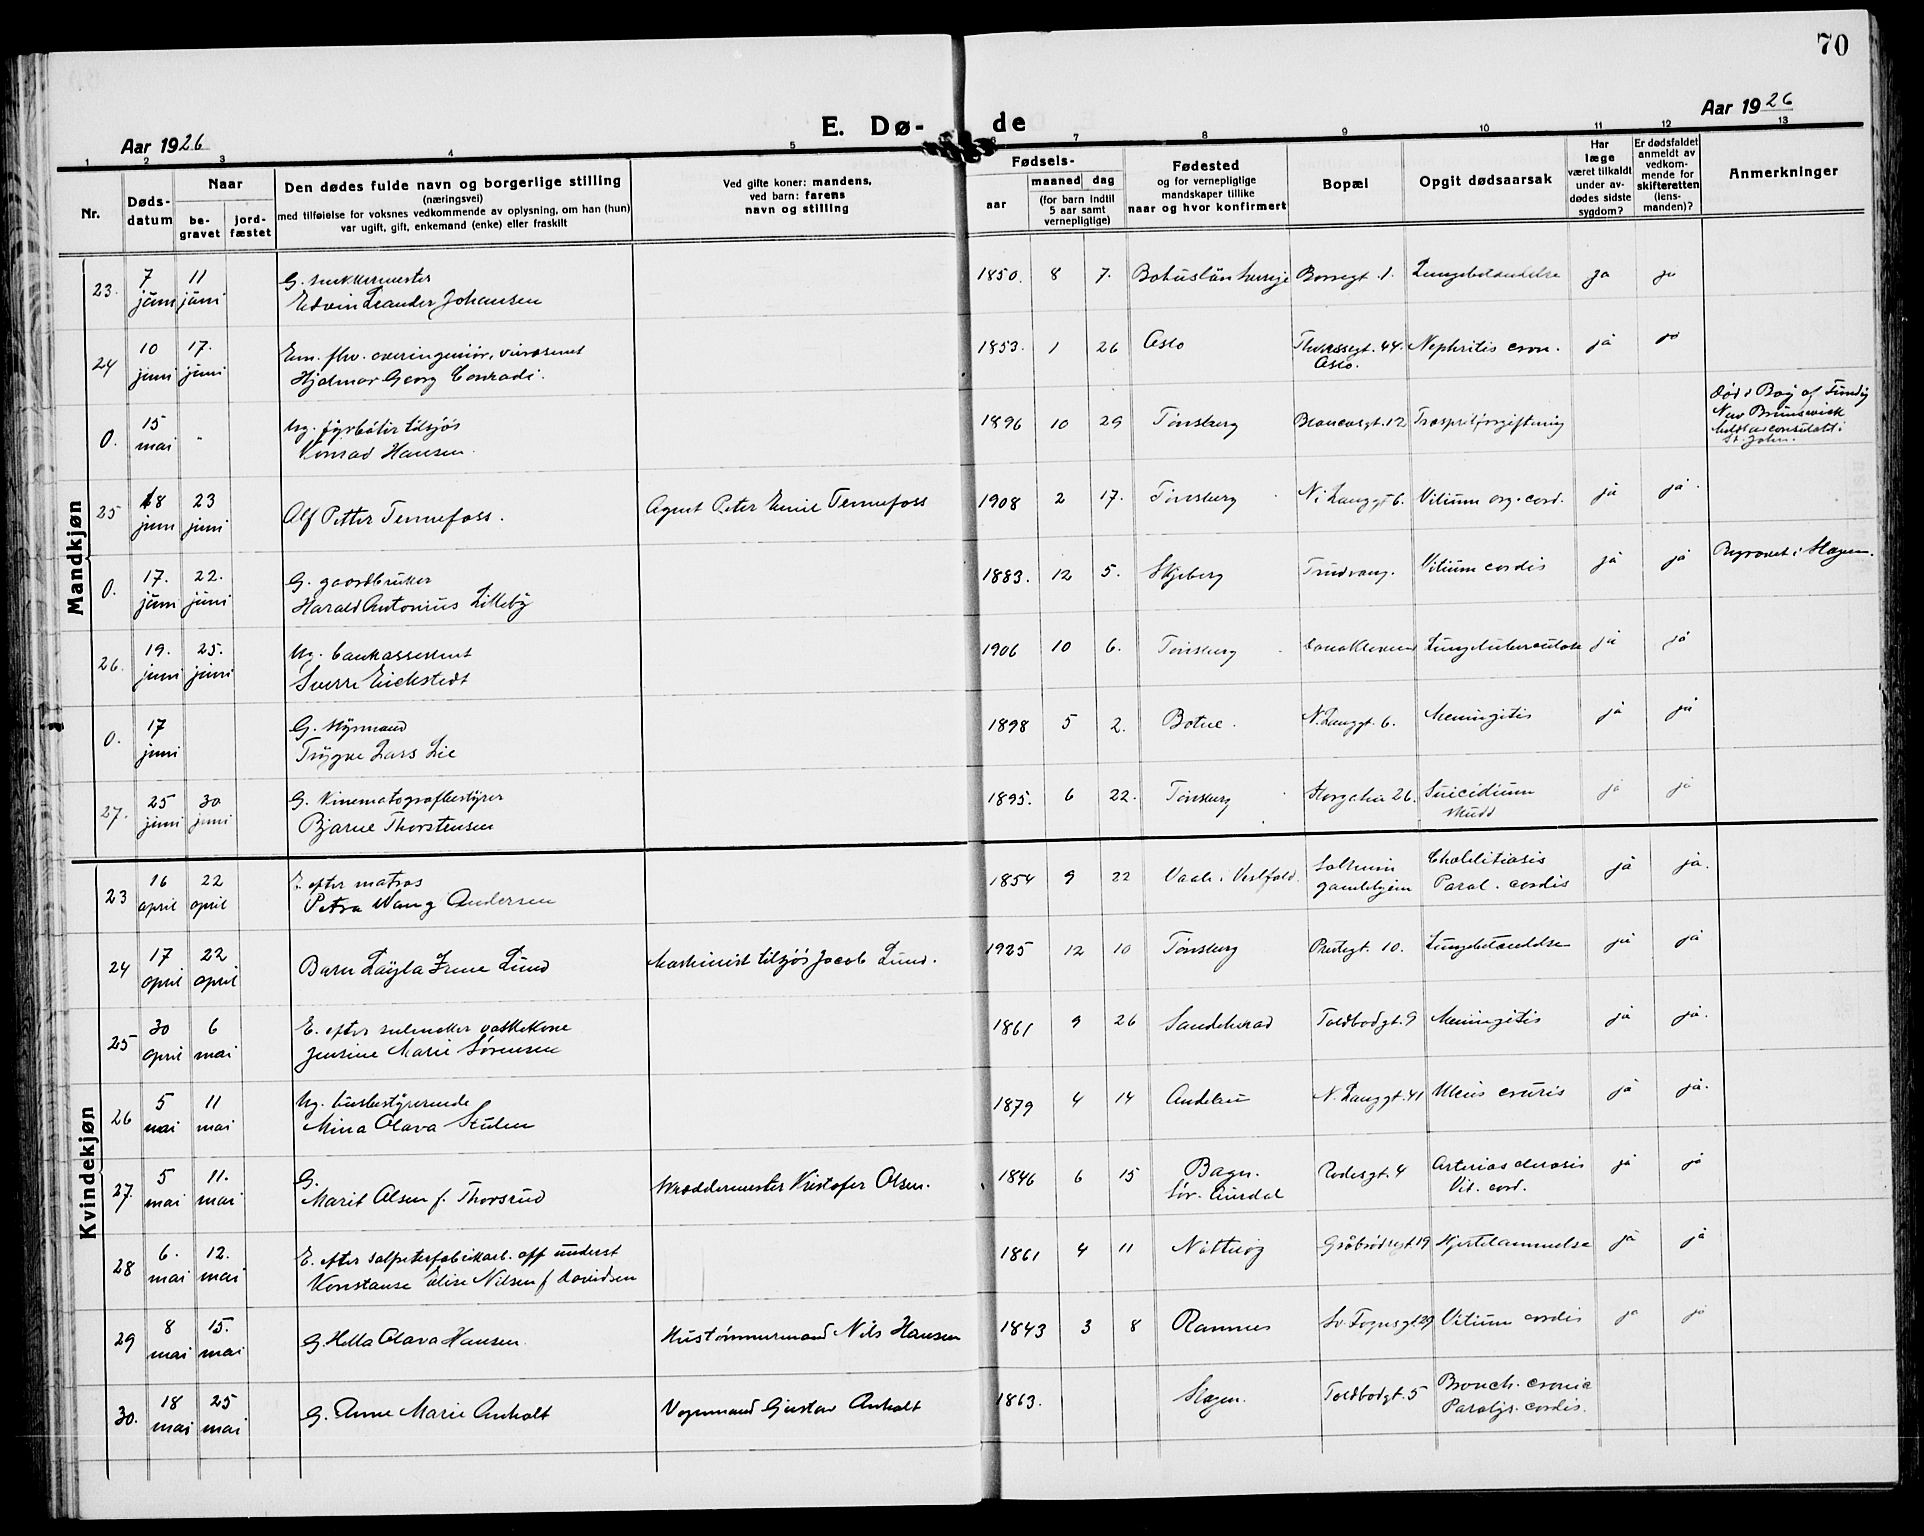 70
Aar 1926
E. Dø-
de
Aar 1926
1 2 3 4 5 6 7 8 9 10 11 12 13
Nr.
Døds-
datum
Naar
be-
gravet
jord-
fæstet
Den dødes fulde navn og borgerlige stilling
(næringsvei)
med tilføielse for voksnes vedkommende av oplysning, om han (hun)
var ugift, gift, enkemand (enke) eller fraskilt
Ved gifte koner: mandens,
ved barn: farens
navn og stilling
Fødsels-
aar
maaned dag
(for barn indtil
5 aar samt
vernepligtige)
Fødested
og for vernepligtige
mandskaper tillike
naar og hvor konfirmert
Bopæl
Opgit dødsaarsak
Har
læge
været tilkaldt
under av-
dødes sidste
sygdom?
Er dødsfaldet
anmeldt av
vedkom-
mende for
skifteretten
(lens-
manden)?
Anmerkninger
Mandkjøn
23. 7 juni 11 juni
G. snekkermester
Edvin Leander Johansen
1850. 8 7. Bohuslän Sverige 1. Lungebetændelse ja ja
24 10 juni 17. juni
Em. fhv. overingeniør,
Hjalmar Georg Conradi.
1853. 1 26 Oslo 44. Oslo. Nephritis cron. ja ja
0. 15 mai -
Ug. fyrbøter tilsjøs
Konrad Hansen.
1896 10 29 Tønsberg 12 Træspritforgiftning
Død i Bay of Fundy
New Brunswick
St. John.
25 18 juni 23 juni
Alf Petter Tennefoss.
Agent Peter Emil Tennefoss
1908 2 17. Tønsberg N. Langgt 6. Vitium org. cord. ja ja.
0. 17. juni 22. juni
G. gaardbruker
Harald Antonius Lilleby
1883. 12 5. Skjeberg Trudvang. Vitium cordis ja ja Begravet i Slagen.
26. 19. juni 25. juni
Ug. bankassistent
Sverre Eickstedt
1906 10 6. Tønsberg Lungetuberculose ja ja
0. 17 juni
G. styrmand
Trygve Lars Lie
1898 5 2. Botne. N. Langgt. 6. Meningitis ja ja
27. 25 juni 30 juni
G. Kinematografbestyrer
Bjarne Thorstensen
1895. 6 22. Tønsberg Storgaten 26. Suicidium skudd ja ja
Kvindekjøn
23 16 april 22 april
E. efter matros
Petra Wang Andersen
1854 9 22 Vaale i Vestfold. Solheim gamlehjem Cholelitiasis
Paral. cordis ja ja.
24 17 april 22 april
Barn Layla Irene Lund
Maskinist tilsjøs Jacob Lund.
1925 12 10 Tønsberg Prestegt. 10. Lungebetændelse ja ja
25 30 april 6 mai
E. efter vaskekone
Jensine Marie Sørensen
1861 9 26 Sandeherad Toldbodgt. 9 Meningitis ja ja.
26 5 mai 11 mai
Ug. husbestyrerinde
Mina Olava Stulen
1879 4 14 Andebu N. Langgt. 41 Ulcus cruris ja ja.
27. 5 mai 11. mai
G.
Marit Olsen f. Thorsrud
Skræddermester Kristofer Olsen.
1846 6 15 Bagn.
Sør. Aurdal 4 Arteriosclerosis
Vit. cord. ja ja
28 6. mai 12. mai
E. efter salpeterfabrikarb. off underst
Konstanse Elise Nilsen f Davidsen
1861 4 11 Nøtterøy Gråbrødregt. 19 Hjertelammelse ja ja
29 8 mai 15. mai
G. Hella Olava Hansen.
Hustømmermand Nils Hansen
1843 3 8 Ramnes Sv. Foynsgt. 29 Vitium cordis ja ja
30. 18 mai 25 mai
G. Anne Marie Anholt
Vognmand Gustav Anholt
1863. Slagen. Toldbodgt. 5 Bronch. cronic
Paralys. cordis.